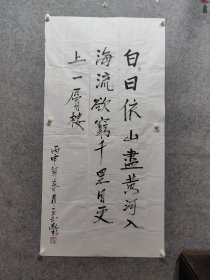 白日依山盡黄河入
海流欲窮千里目更
上一層楼
丙申